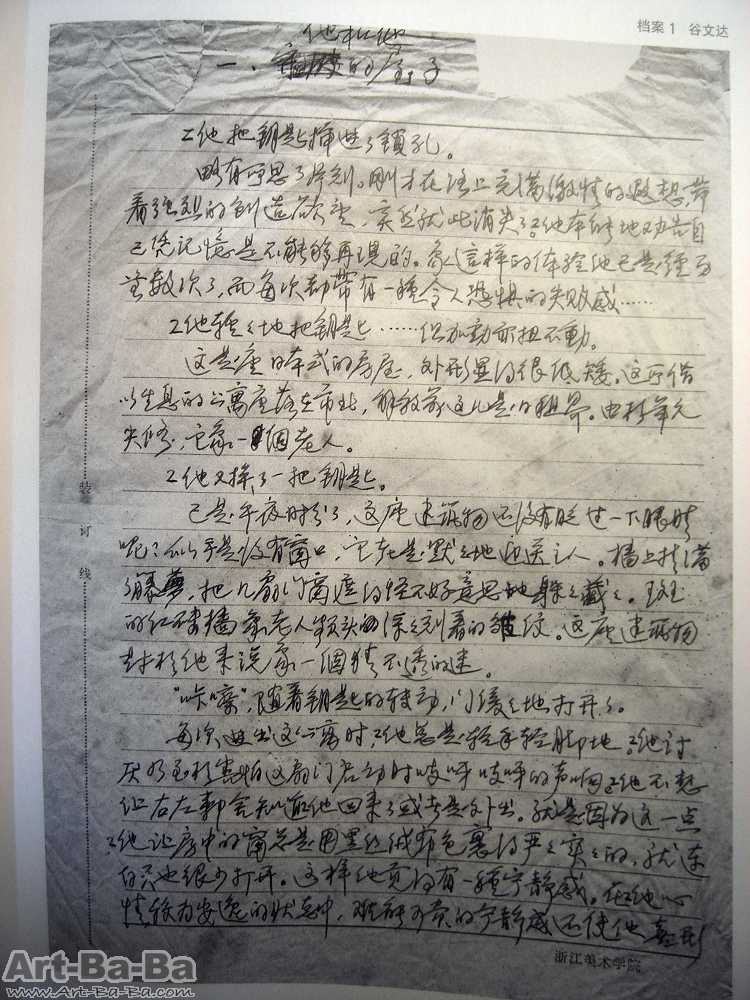 档案1 谷文达
他和她
一、的房子
他把钥匙插进了锁孔。
略有所思了片刻。刚才在路上充满激情的遐想,带
着强烈的創造欲望,突然就此消失了。他本能地劝告自
己凭记憶是不能够再現的。象這样的体验他已是經历
无数次了,而每次都带有一種令人恐惧的失敗感……
他轻轻地把钥匙……但加動亦扭不動。
这是座日本式的房屋,外形显得很低矮。这所借
以生息的公寓座落在市北,解放前这儿是日租界。由於年久
失修,它象一個老人。
他又換了一把钥匙。
已是午夜时分了,这座建筑物还没有眨过一下眼睛
呢?似乎是没有窗口,它充是默默地迎送主人。墙上挂满
了藤蘿,把几扇门窗遮得怪不好意思地躲躲藏藏。斑
的红砖墙象老人额头的深深刻着的皱纹。这座建筑物
对於他来说象一個猜不透的迷。
“咔嚓”,随着钥匙的转动,门缓缓地打开了。
每次进出这公寓时,他总是轻手轻脚地。他讨
厌乃至於害怕这扇门启动时吱呀吱呀的声响。他不想
让右左鄰舍知道他回来了或者是外出。就是因为这一点
他让房中的窗总是用黑丝绒布包裹得严严实实的,就连
白天也很少打开。这样他觉得有一種宁静感。在他心
情较为安逸的状态中,难能可贵的宁静感不使他
装订线
浙江美术学院
Art-Ba-Ba
www.Art-Ba-Ba.com